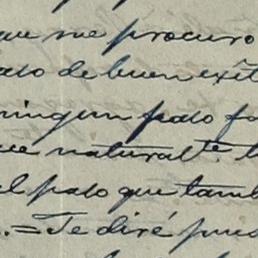 que me procuro
paso de buen exit
ningun paso fa
que naturalte. t
el paso que tamb
.= Te diré pues